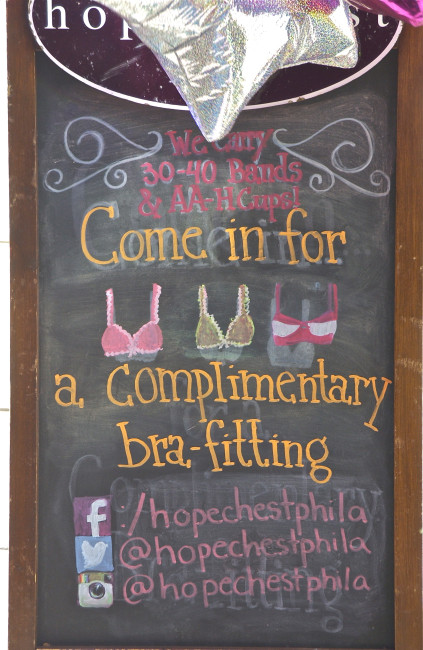 hop st
We carry
30-40 Bands
& AA-H Cups!
Come in for
a complimentary
bra-fitting
f :/hopechestphila
@hopechestphila
@hopechestphila